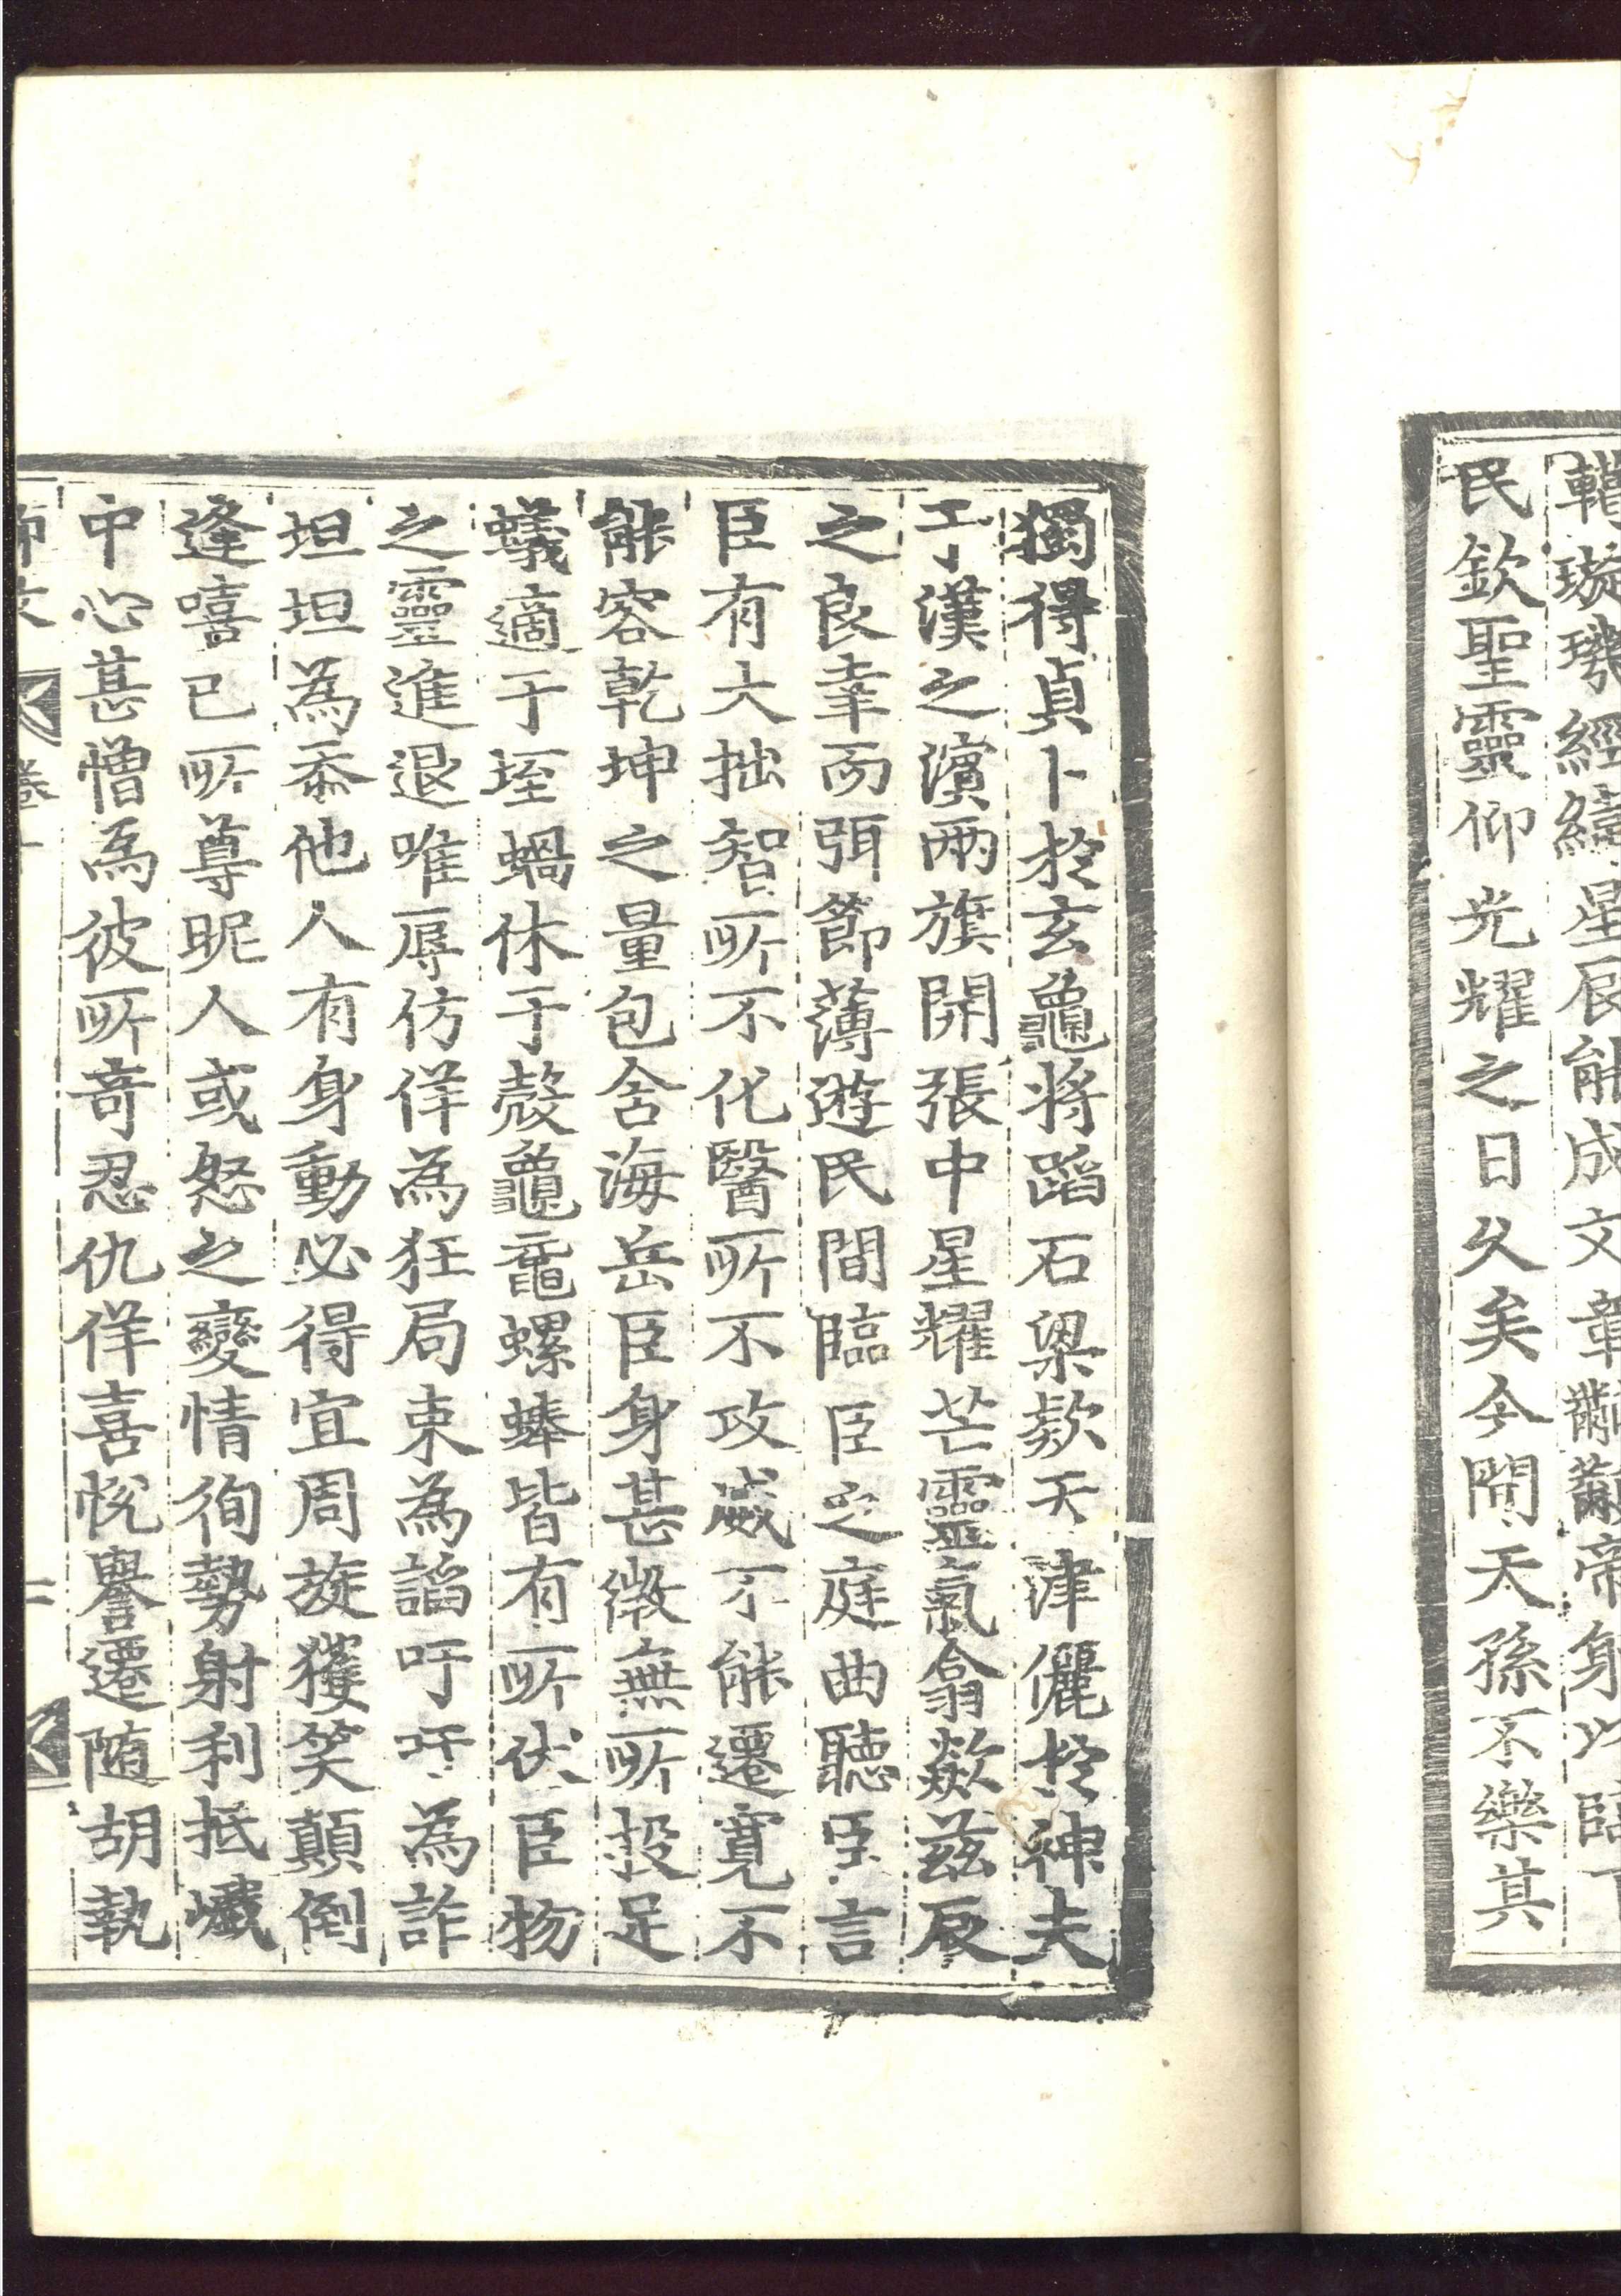 轅璇璣經緯星辰能成文章黼黻帝身以臨下
民欽聖靈仰光耀之日久矣今聞天孫不樂其
獨得貞卜於玄龜將蹈石梁欵天津儷於神夫
于漢之濱兩旗開張中星耀芒靈氣翕歘兹辰
之良幸而弭節薄遊民間臨臣之庭曲聽臣言
臣有大拙智所不化醫所不攻威不能遷寬不
能容乾坤之量包含海岳臣身甚微無所投足
蟻適于垤蝸休于殼龜黿螺蜯皆有所伏臣物
之靈進退唯辱仿佯為狂局束為諂吁吁為詐
坦坦為忝他人有身動必得宜周旋獲笑顛倒
逢嘻已所尊昵人或怒之變情徇勢射利抵巇
中心甚憎為彼所奇忍仇佯喜悅譽遷随胡執